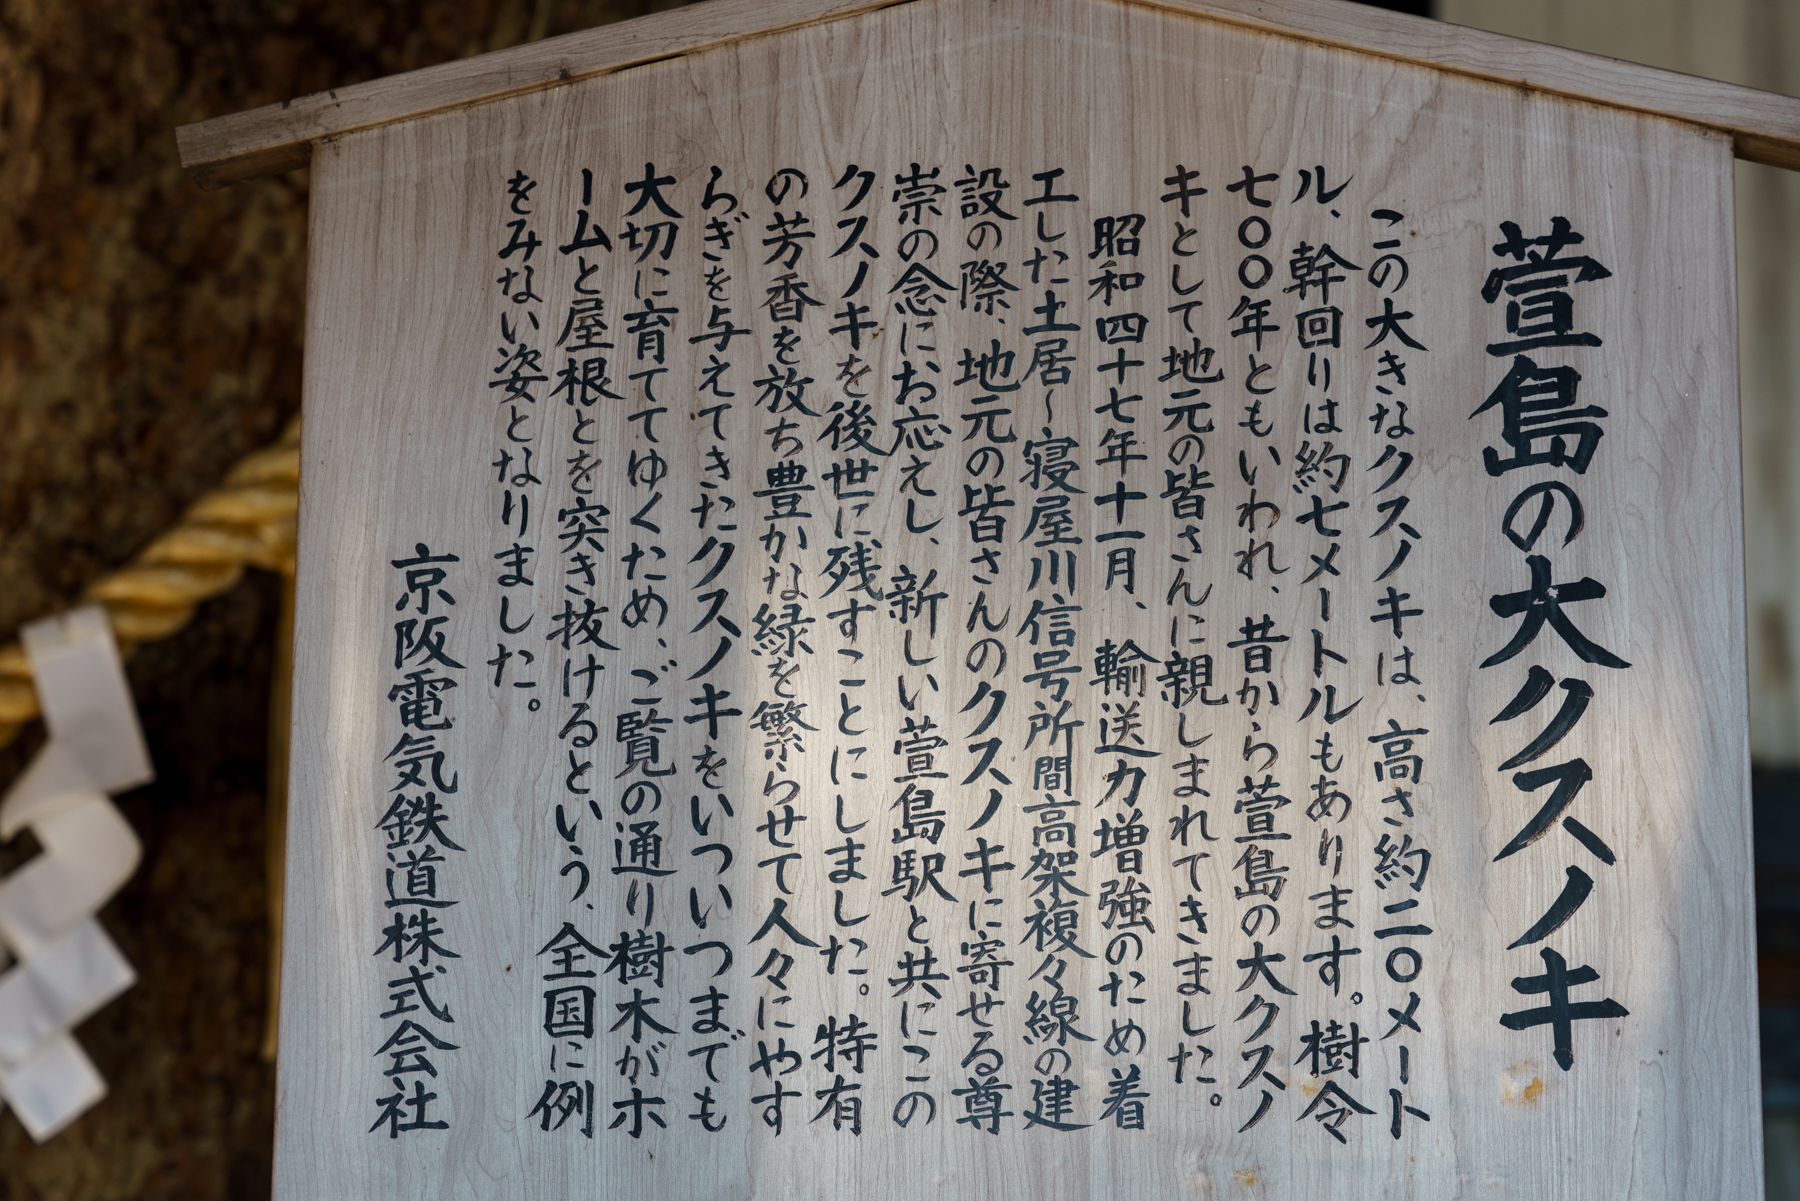 萱島の大クスノキ
この大きなクスノキは、高さ約二〇メート
ル、幹回りは約七メートルもあります。樹令
七〇〇年ともいわれ、昔から萱島の大クスノ
キとして地元の皆さんに親しまれてきました。
昭和四十七年十一月、輸送力増強のため着
工した土居～寝屋川信号所間高架複々線の建
設の際、地元の皆さんのクスノキに寄せる尊
崇の念にお応えし、新しい萱島駅と共にこの
クスノキを後世に残すことにしました。特有
の芳香を放ち豊かな緑を繁らせて人々にやす
らぎを与えてきたクスノキをいついつまでも
大切に育ててゆくため、ご覧の通り樹木がホ
ームと屋根とを突き抜けるという、全国に例
をみない姿となりました。
京阪電気鉄道株式会社